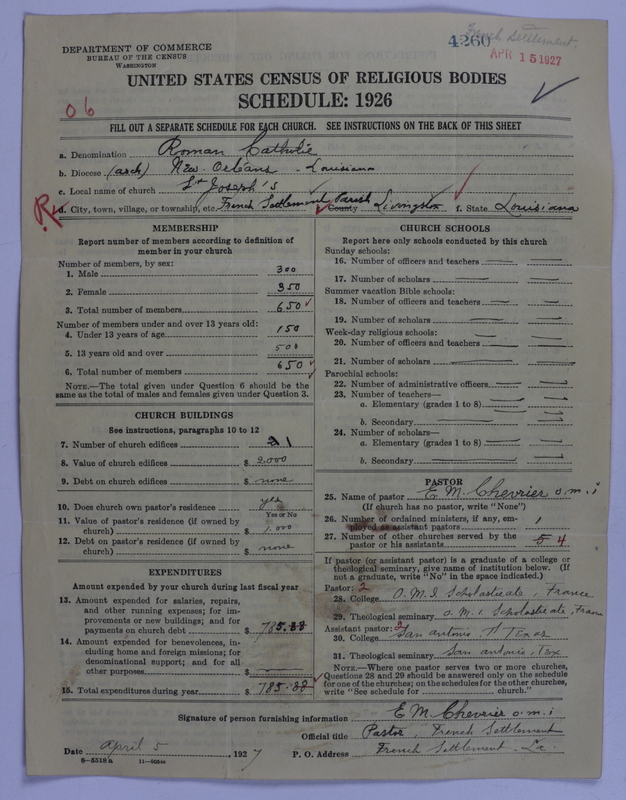 French Settlement.
4260
APR 15 1927
DEPARTMENT OF COMMERCE
BUREAU OF THE CENSUS
WASHINGTON
UNITED STATES CENSUS OF RELIGIOUS BODIES
SCHEDULE: 1926
06
FILL OUT A SEPARATE SCHEDULE FOR EACH CHURCH. SEE INSTRUCTIONS ON THE BACK OF THIS SHEET
a. Denomination Roman Catholic
b. Diocese (arch) New Orleans - Louisiana
c. Local name of church St Joseph's
R d. City, town, village, or township, etc. French Settlement Parish County Livingston f. State Louisiana
MEMBERSHIP
Report number of members according to definition of
member in your church
Number of members, by sex:
1. Male 300
2. Female 350
3. Total number of members 650
Number of members under and over 13 years old:
4. Under 13 years of age 150
5. 13 years old and over 500
6. Total number of members 650
NOTE.—The total given under Question 6 should be the
same as the total of males and females given under Question 3.
CHURCH BUILDINGS
See instructions, paragraphs 10 to 12
7. Number of church edifices 1
8. Value of church edifices $ 2.000
9. Debt on church edifices $ none
10. Does church own pastor's residence yes
Yes or No
11. Value of pastor's residence (if owned by
church) $ 1.000
12. Debt on pastor's residence (if owned by
church) $ none
EXPENDITURES
Amount expended by your church during last fiscal year
13. Amount expended for salaries, repairs,
and other running expenses; for im-
provements or new buildings; and for
payments on church debt $ 785.88
14. Amount expended for benevolences, in-
cluding home and foreign missions; for
denominational support; and for all
other purposes $
15. Total expenditures during year $ 785.88
CHURCH SCHOOLS
Report here only schools conducted by this church
Sunday schools:
16. Number of officers and teachers
17. Number of scholars
Summer vacation Bible schools:
18. Number of officers and teachers
19. Number of scholars
Week-day religious schools:
20. Number of officers and teachers
21. Number of scholars
Parochial schools:
22. Number of administrative officers
23. Number of teachers—
a. Elementary (grades 1 to 8)
b. Secondary
24. Number of scholars—
a. Elementary (grades 1 to 8)
b. Secondary
PASTOR
25. Name of pastor E. M. Chevrier o.m.i
(If church has no pastor, write "None")
26. Number of ordained ministers, if any, em-
ployed as assistant pastors 1
27. Number of other churches served by the
pastor or his assistants 5 4
If pastor (or assistant pastor) is a graduate of a college or
theological seminary, give name of institution below. (If
not a graduate, write "No" in the space indicated.)
Pastor: 2
28. College O.M.I Scholasticate, France
29. Theological seminary O.M.I Scholasticate, Fran
Assistant pastor: 2
30. College San Antonio, Texas
31. Theological seminary San Antonio, Tex
NOTE.—Where one pastor serves two or more churches,
Questions 28 and 29 should be answered only on the schedule
for one of the churches; on the schedules for the other churches,
write "See schedule for church."
Signature of person furnishing information E M Chevrier o.m.i
Official title Pastor, French Settlement
Date April 5, 1927 P. O. Address French Settlement - La.
8-5518a 11-